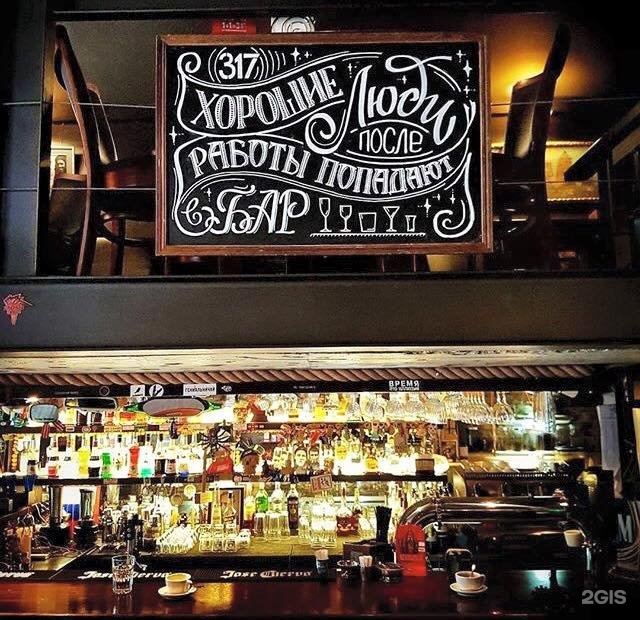 317
ХОРОШИЕ Люди
после
РАБОТЫ ПОПАДАЮТ
в БАР
ВРЕМЯ
Jose Cuervo
Jose Cuervo
2GIS